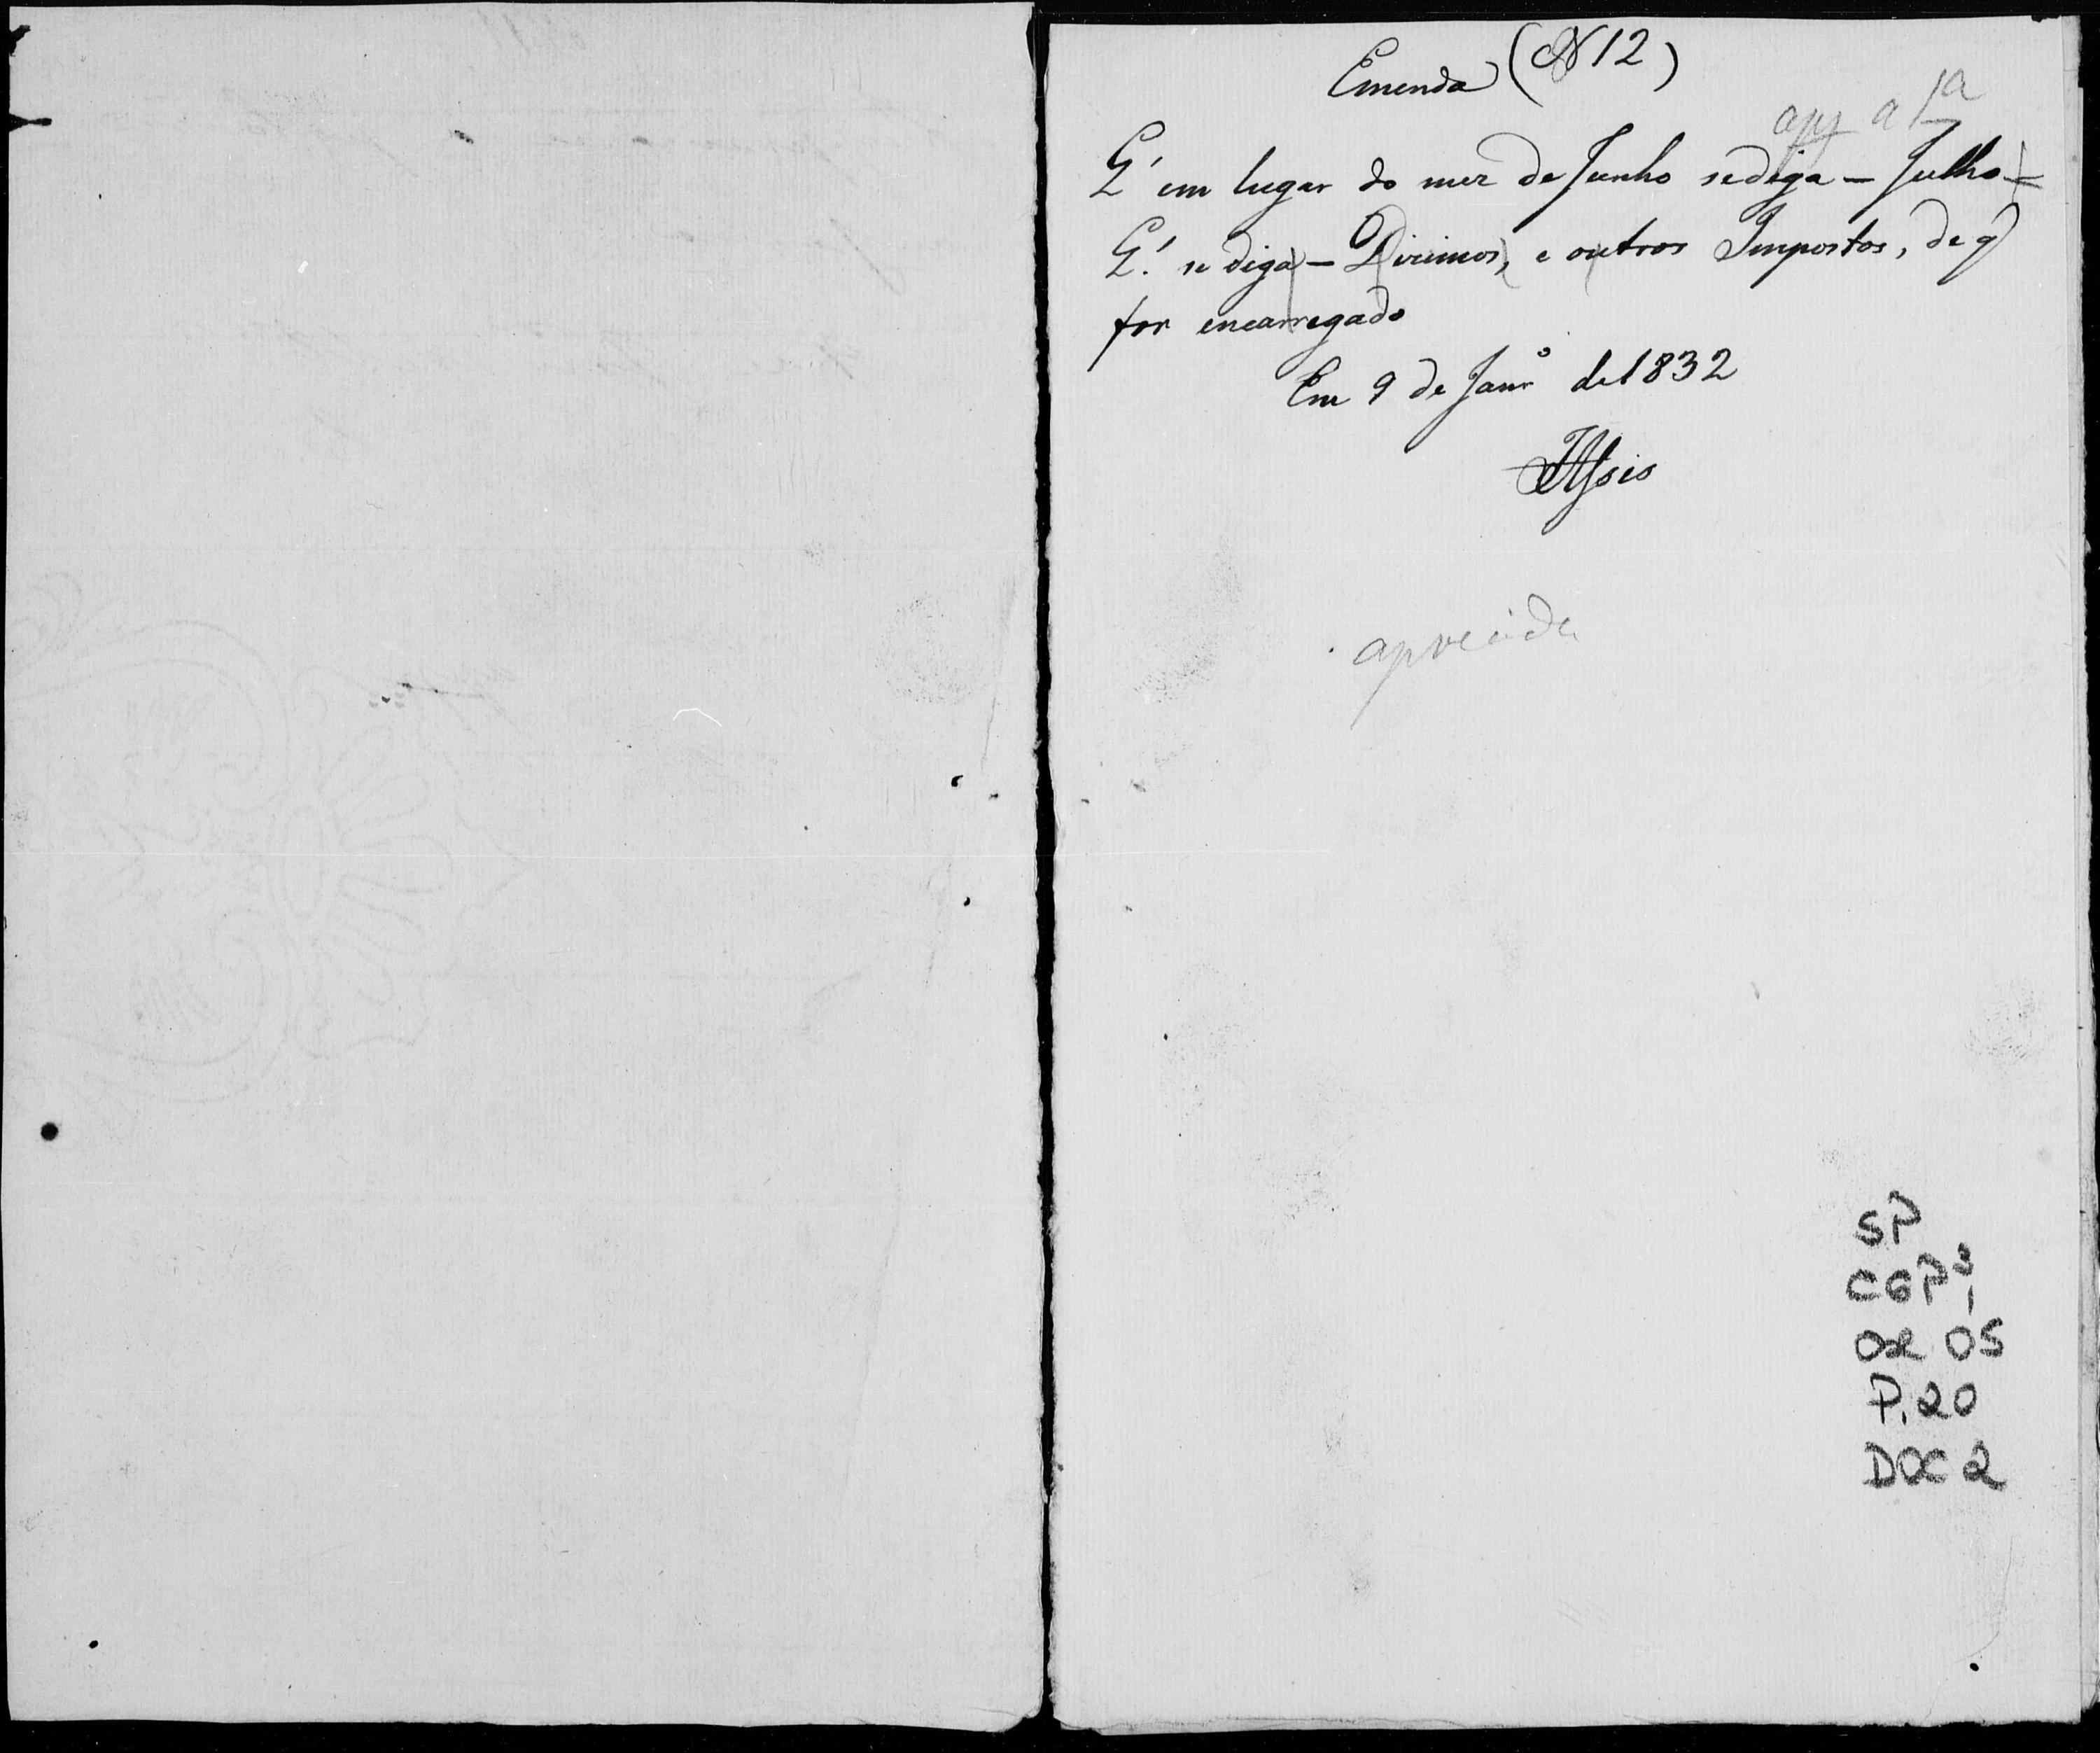 Emenda (N 12)
app a 1ª
E' em lugar do mez de Junho se diga – Julho =
E'. se diga – Dizimos, e outros Impostos, de q
for encarregado
Em 9 de Janrº de 1832
Assis
SP
CGP
05
P. 20
DOC 2